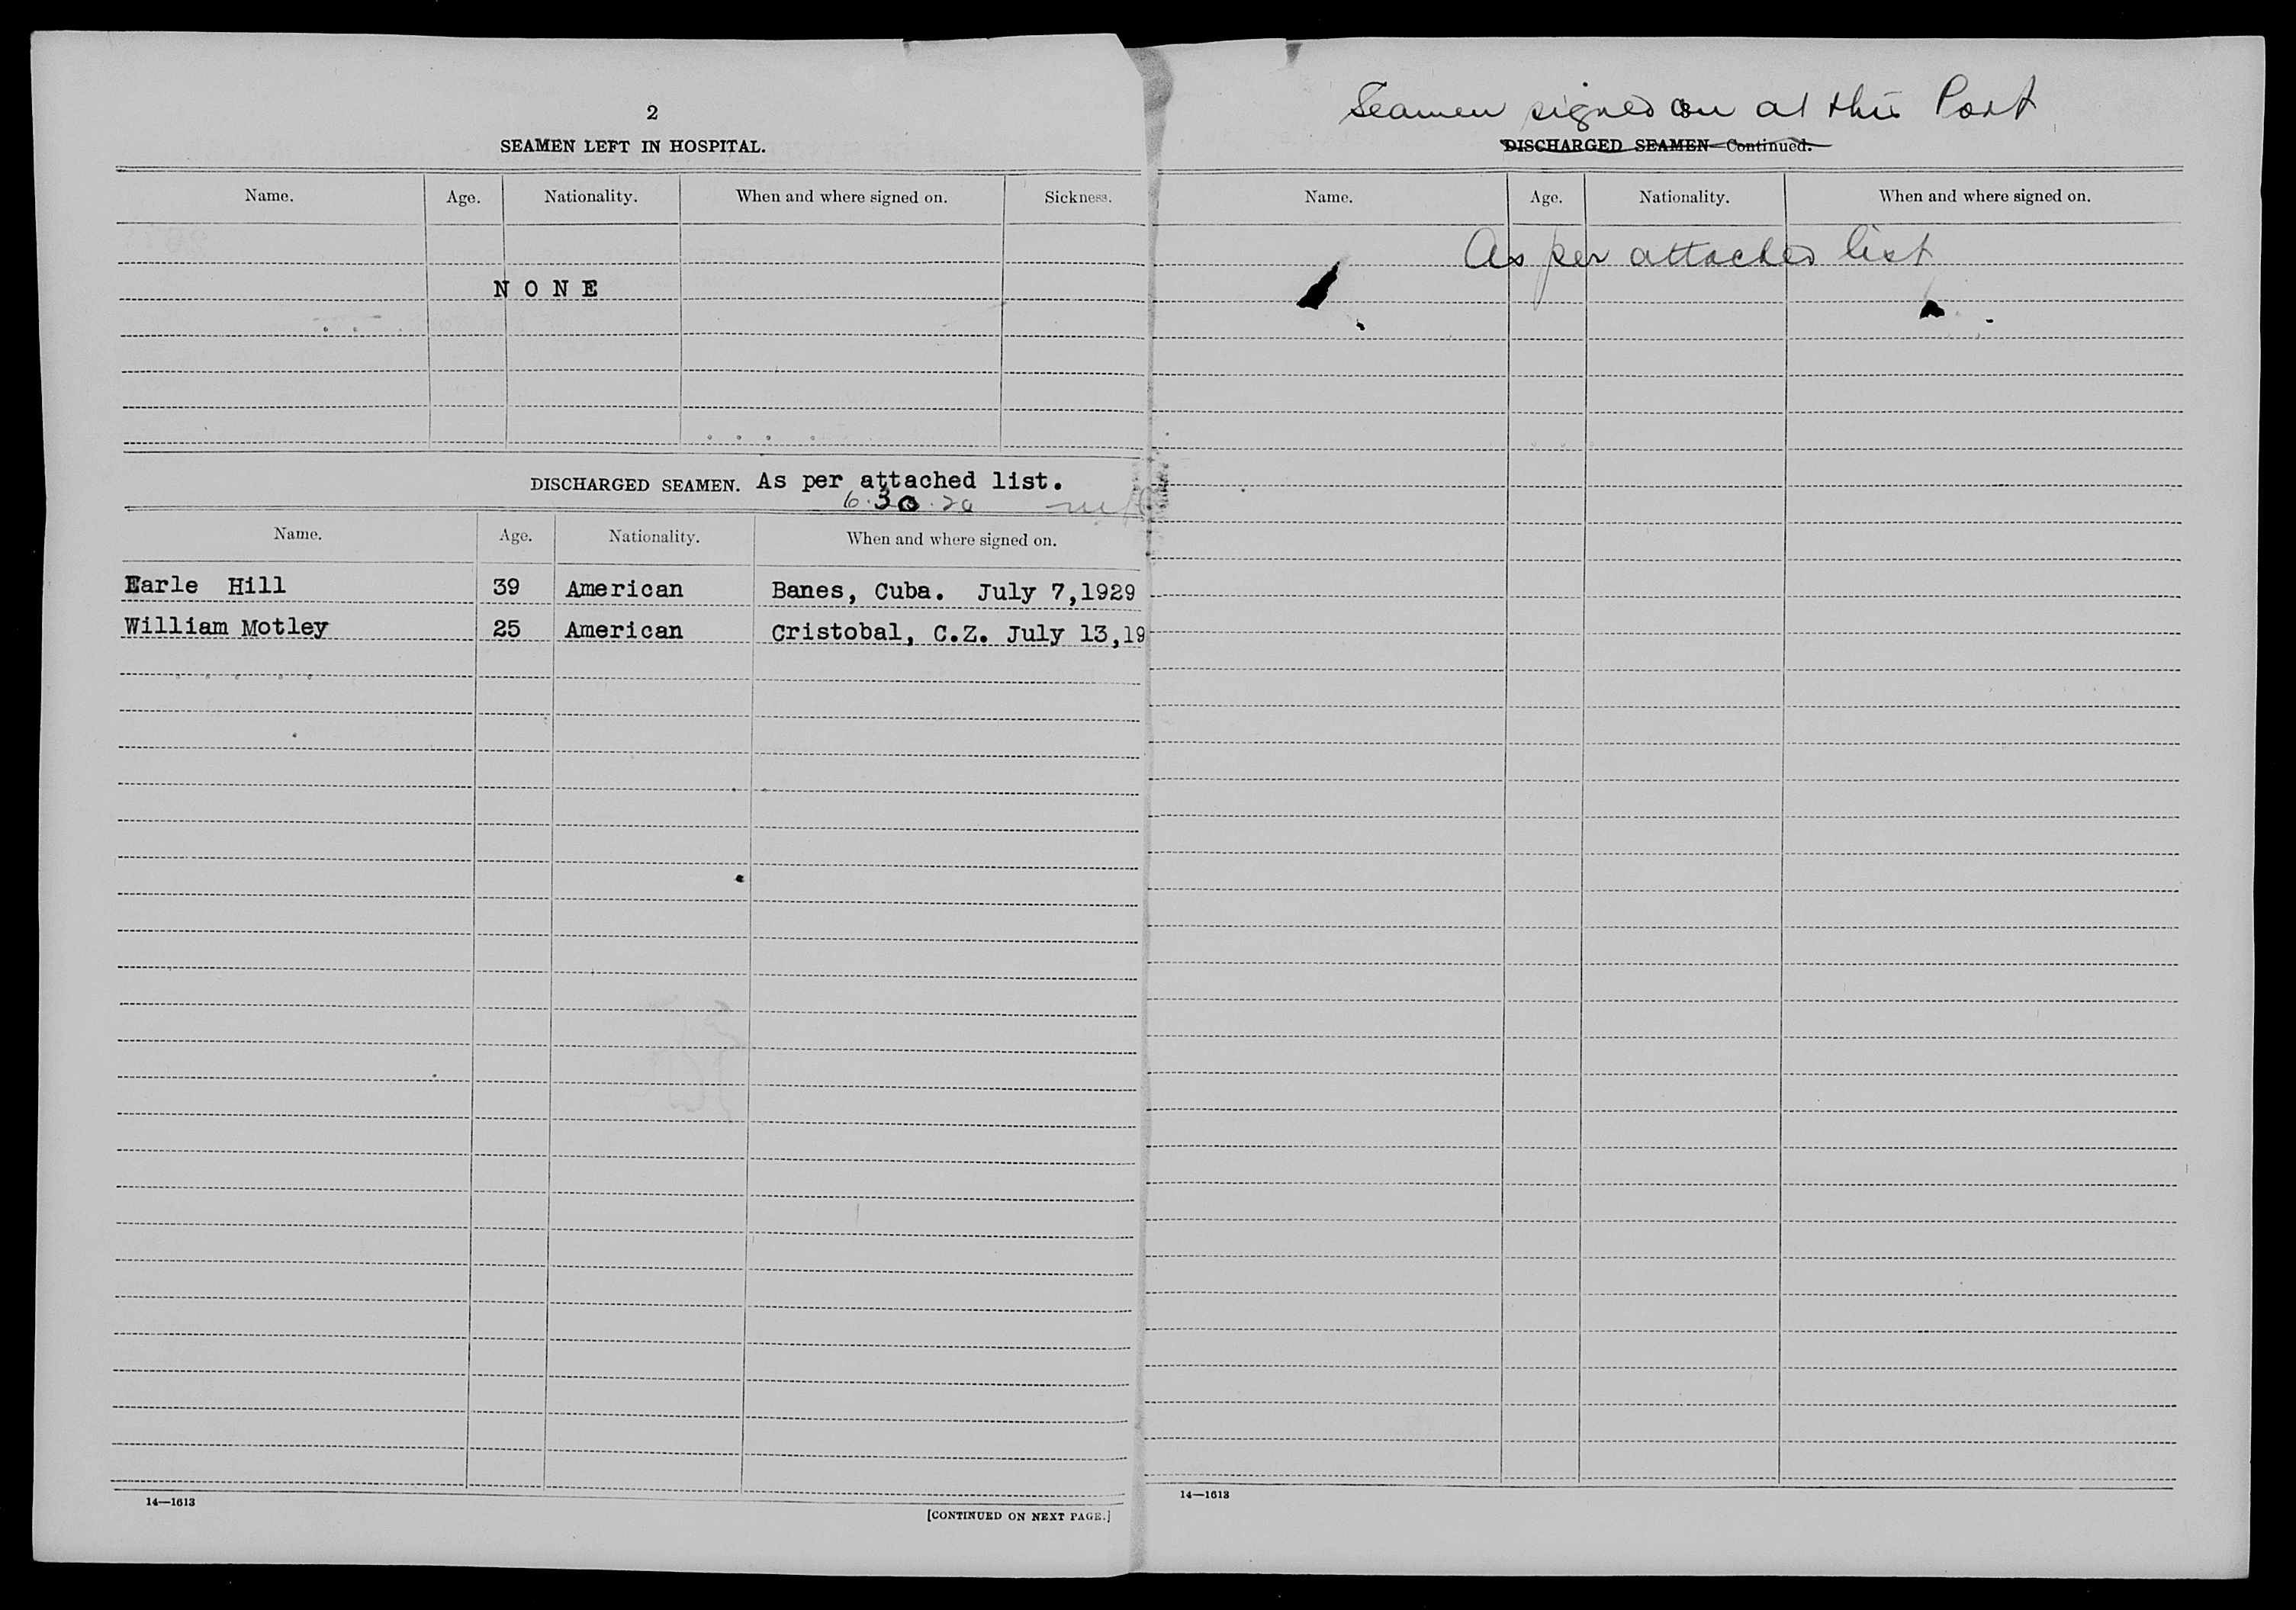 2
SEAMEN LEFT IN HOSPITAL.
Name. Age. Nationality. When and where signed on. Sickness.
NONE
DISCHARGED SEAMEN. As per attached list.
6.30.
Name. Age. Nationality. When and where signed on.
Earle Hill 39 American Banes, Cuba. July 7,1929
William Motley 25 American Cristobal, C.Z. July 13,19
14—1613
[CONTINUED ON NEXT PAGE.]
Seamen signed on at this Port
DISCHARGED SEAMEN—Continued.
Name. Age. Nationality. When and where signed on.
As per attached list
14—1613